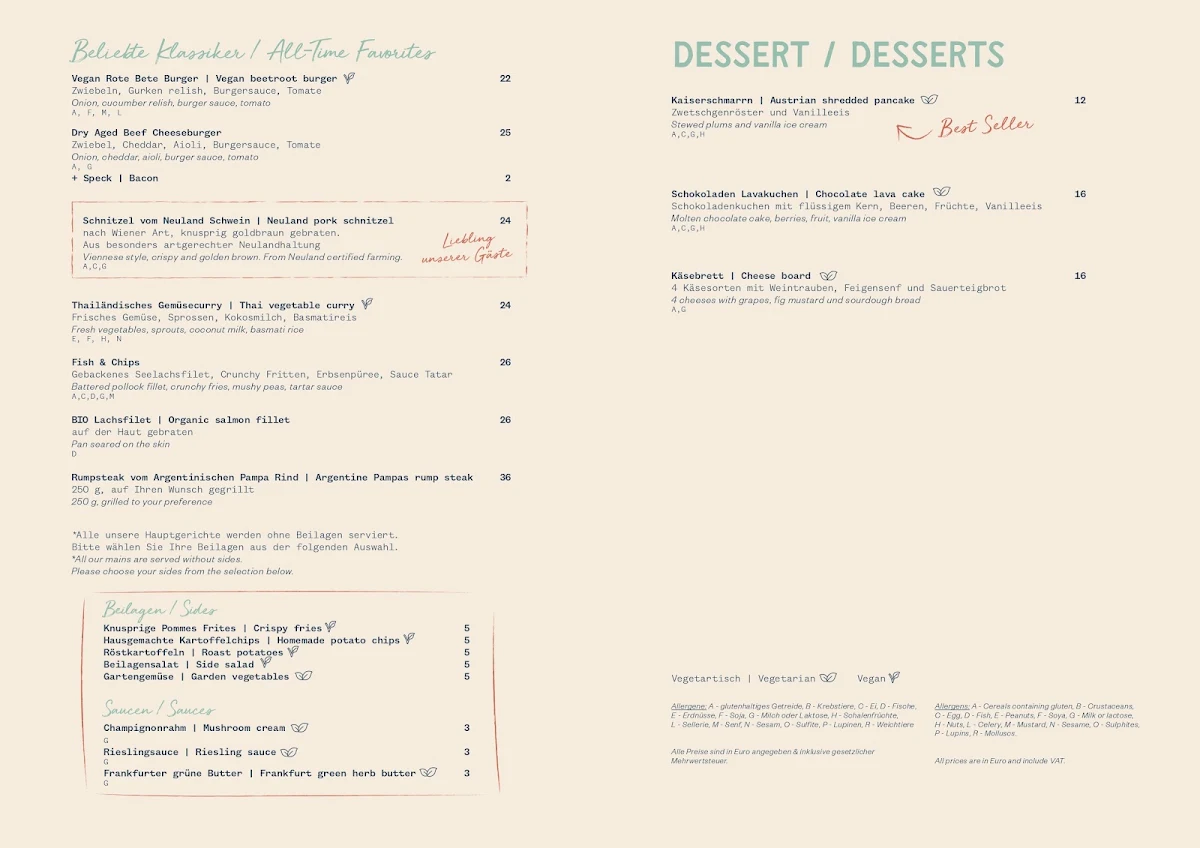 Beliebte Klassiker / All-Time Favorites
Vegan Rote Bete Burger | Vegan beetroot burger 22
Zwiebeln, Gurken relish, Burgersauce, Tomate
Onion, cucumber relish, burger sauce, tomato
A, F, M, L
Dry Aged Beef Cheeseburger 25
Zwiebel, Cheddar, Aioli, Burgersauce, Tomate
Onion, cheddar, aioli, burger sauce, tomato
A, G
+ Speck | Bacon 2
Schnitzel vom Neuland Schwein | Neuland pork schnitzel 24
nach Wiener Art, knusprig goldbraun gebraten.
Aus besonders artgerechter Neulandhaltung
Viennese style, crispy and golden brown. From Neuland certified farming.
A,C,G
Liebling
unserer Gäste
Thailändisches Gemüsecurry | Thai vegetable curry 24
Frisches Gemüse, Sprossen, Kokosmilch, Basmatireis
Fresh vegetables, sprouts, coconut milk, basmati rice
E, F, H, N
Fish & Chips 26
Gebackenes Seelachsfilet, Crunchy Fritten, Erbsenpüree, Sauce Tatar
Battered pollock fillet, crunchy fries, mushy peas, tartar sauce
A,C,D,G,M
BIO Lachsfilet | Organic salmon fillet 26
auf der Haut gebraten
Pan seared on the skin
D
Rumpsteak vom Argentinischen Pampa Rind | Argentine Pampas rump steak 36
250 g, auf Ihren Wunsch gegrillt
250 g, grilled to your preference
*Alle unsere Hauptgerichte werden ohne Beilagen serviert.
Bitte wählen Sie Ihre Beilagen aus der folgenden Auswahl.
*All our mains are served without sides.
Please choose your sides from the selection below.
Beilagen / Sides
Knusprige Pommes Frites | Crispy fries 5
Hausgemachte Kartoffelchips | Homemade potato chips 5
Röstkartoffeln | Roast potatoes 5
Beilagensalat | Side salad 5
Gartengemüse | Garden vegetables 5
Saucen / Sauces
Champignonrahm | Mushroom cream 3
G
Rieslingsauce | Riesling sauce 3
G
Frankfurter grüne Butter | Frankfurt green herb butter 3
G
DESSERT / DESSERTS
Kaiserschmarrn | Austrian shredded pancake 12
Zwetschgenröster und Vanilleeis
Stewed plums and vanilla ice cream
A,C,G,H
Best Seller
Schokoladen Lavakuchen | Chocolate lava cake 16
Schokoladenkuchen mit flüssigem Kern, Beeren, Früchte, Vanilleeis
Molten chocolate cake, berries, fruit, vanilla ice cream
A,C,G,H
Käsebrett | Cheese board 16
4 Käsesorten mit Weintrauben, Feigensenf und Sauerteigbrot
4 cheeses with grapes, fig mustard und sourdough bread
A,G
Vegetartisch | Vegetarian Vegan
Allergene: A - glutenhaltiges Getreide, B - Krebstiere, C - Ei, D - Fische,
E - Erdnüsse, F - Soja, G - Milch oder Laktose, H - Schalenfrüchte,
L - Sellerie, M - Senf, N - Sesam, O - Sulfite, P - Lupinen, R - Weichtiere
Alle Preise sind in Euro angegeben & inklusive gesetzlicher
Mehrwertsteuer.
Allergens: A - Cereals containing gluten, B - Crustaceans,
C - Egg, D - Fish, E - Peanuts, F - Soya, G - Milk or lactose,
H - Nuts, L - Celery, M - Mustard, N - Sesame, O - Sulphites,
P - Lupins, R - Molluscs.
All prices are in Euro and include VAT.